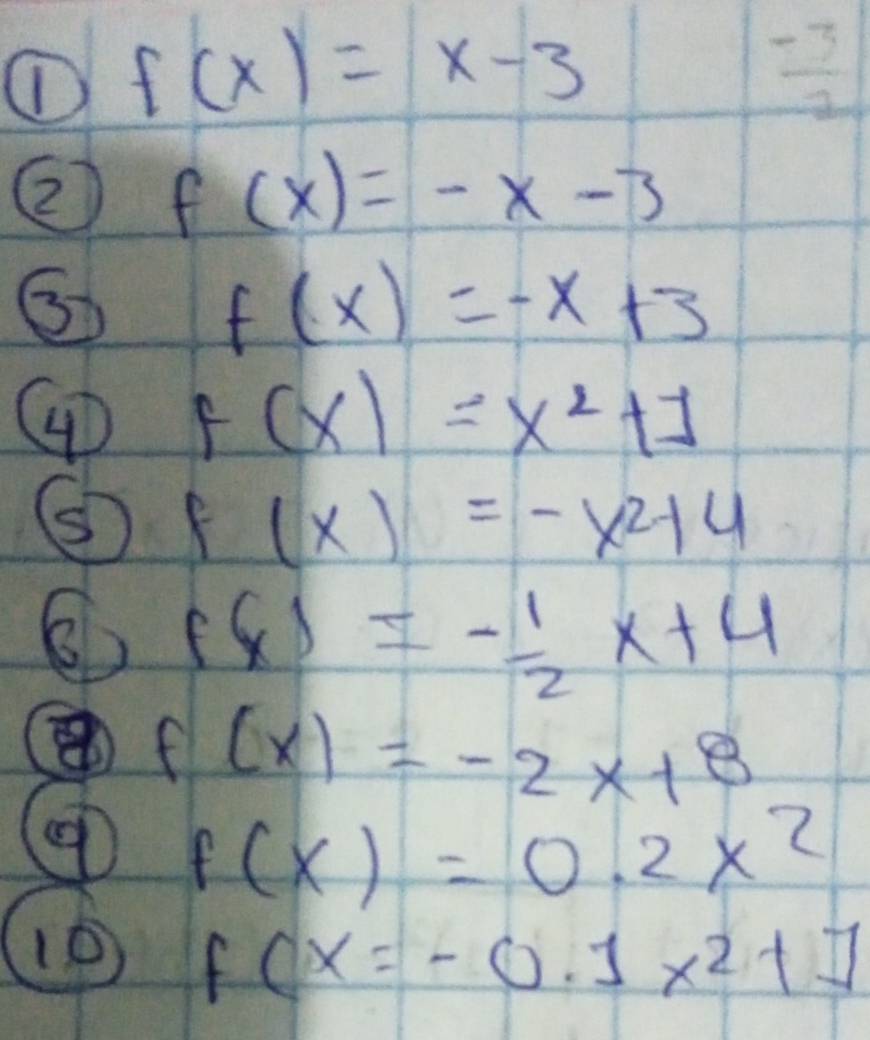 ① f(x) = x-3
② f(x) = -x-3
③ f(x) = -x+3
④ f(x) = x²+1
⑤ f(x) = -x²+4
⑥ f(x) = -1/2 x+4
⑧ f(x) = -2x+8
⑨ f(x) = 0.2x²
⑩ f(x = -0.1x²+1